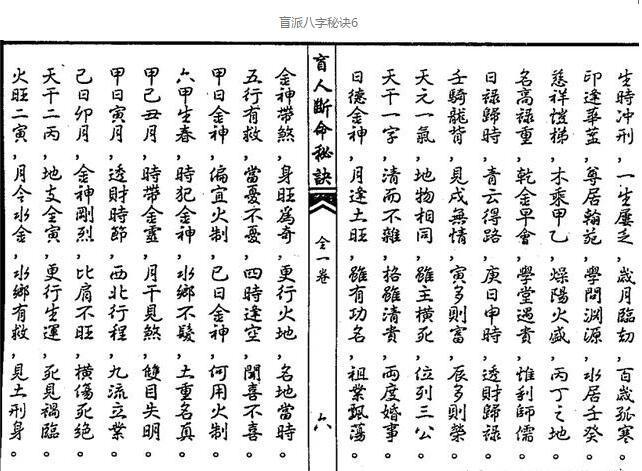 盲派八字秘诀6
生時冲刑，一生屢乏，歲月臨刧，百歲孤寒。
印逢華蓋，尊居翰苑，學問淵源，水居壬癸。
慈祥愷悌，木乘甲乙，燥陽火盛，丙丁之地。
名高祿重，乾金早會，學堂遇貴，惟利師儒。
日祿歸時，青云得路，庚日申時，透財歸祿。
壬騎龍背，見戌無情，寅多則富，辰多則榮。
天元一氣，地物相同，雖主橫死，位列三公。
天干一字，清而不雜，格雖清貴，両度婚事。
日德金神，月逢土旺，雖有功名，祖業飄蕩。
盲人斷命秘訣
全一卷
六
金神帶煞，身旺為奇，更行火地，名地當時。
五行有救，當憂不憂，四時逢空，聞喜不喜。
甲日金神，偏宜火制，己日金神，何用火制。
六甲生春，時犯金神，水鄉不發，土重名真。
甲己丑月，時帶金靈，月干見煞，雙目失明。
甲日寅月，透財時節，西北行程，九流立業。
己日卯月，金神剛烈，比肩不旺，橫傷死絕。
天干二丙，地支全寅，更行生運，死見禍臨。
火旺二寅，月令水金，水鄉有救，見土刑身。